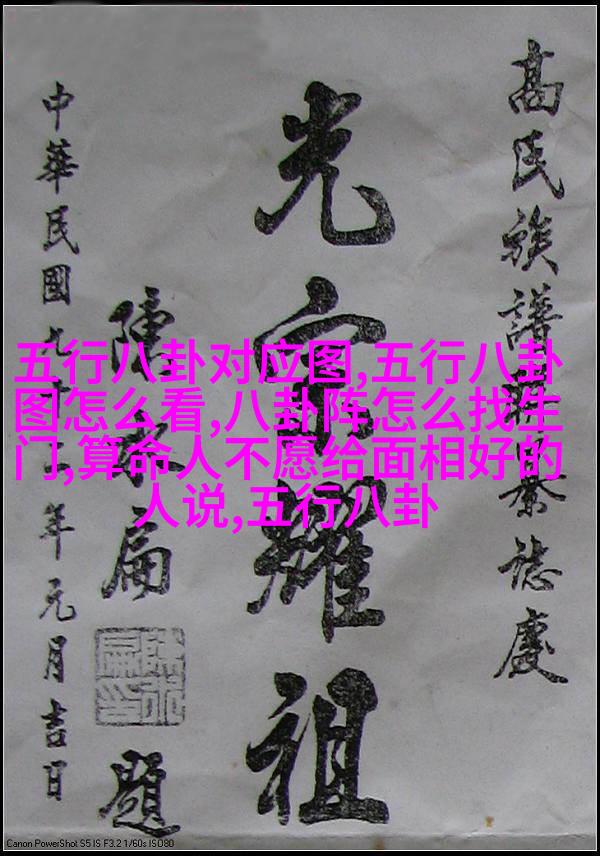 高氏族譜誌慶
光宗耀祖
陳水扁
題
中華民國九十年元月吉日
五行八卦对应图,五行八卦
图怎么看,八卦阵怎么找生
门,算命人不愿给面相好的
人说,五行八卦
Canon PowerShot S5 IS F3.2 1/60s ISO80